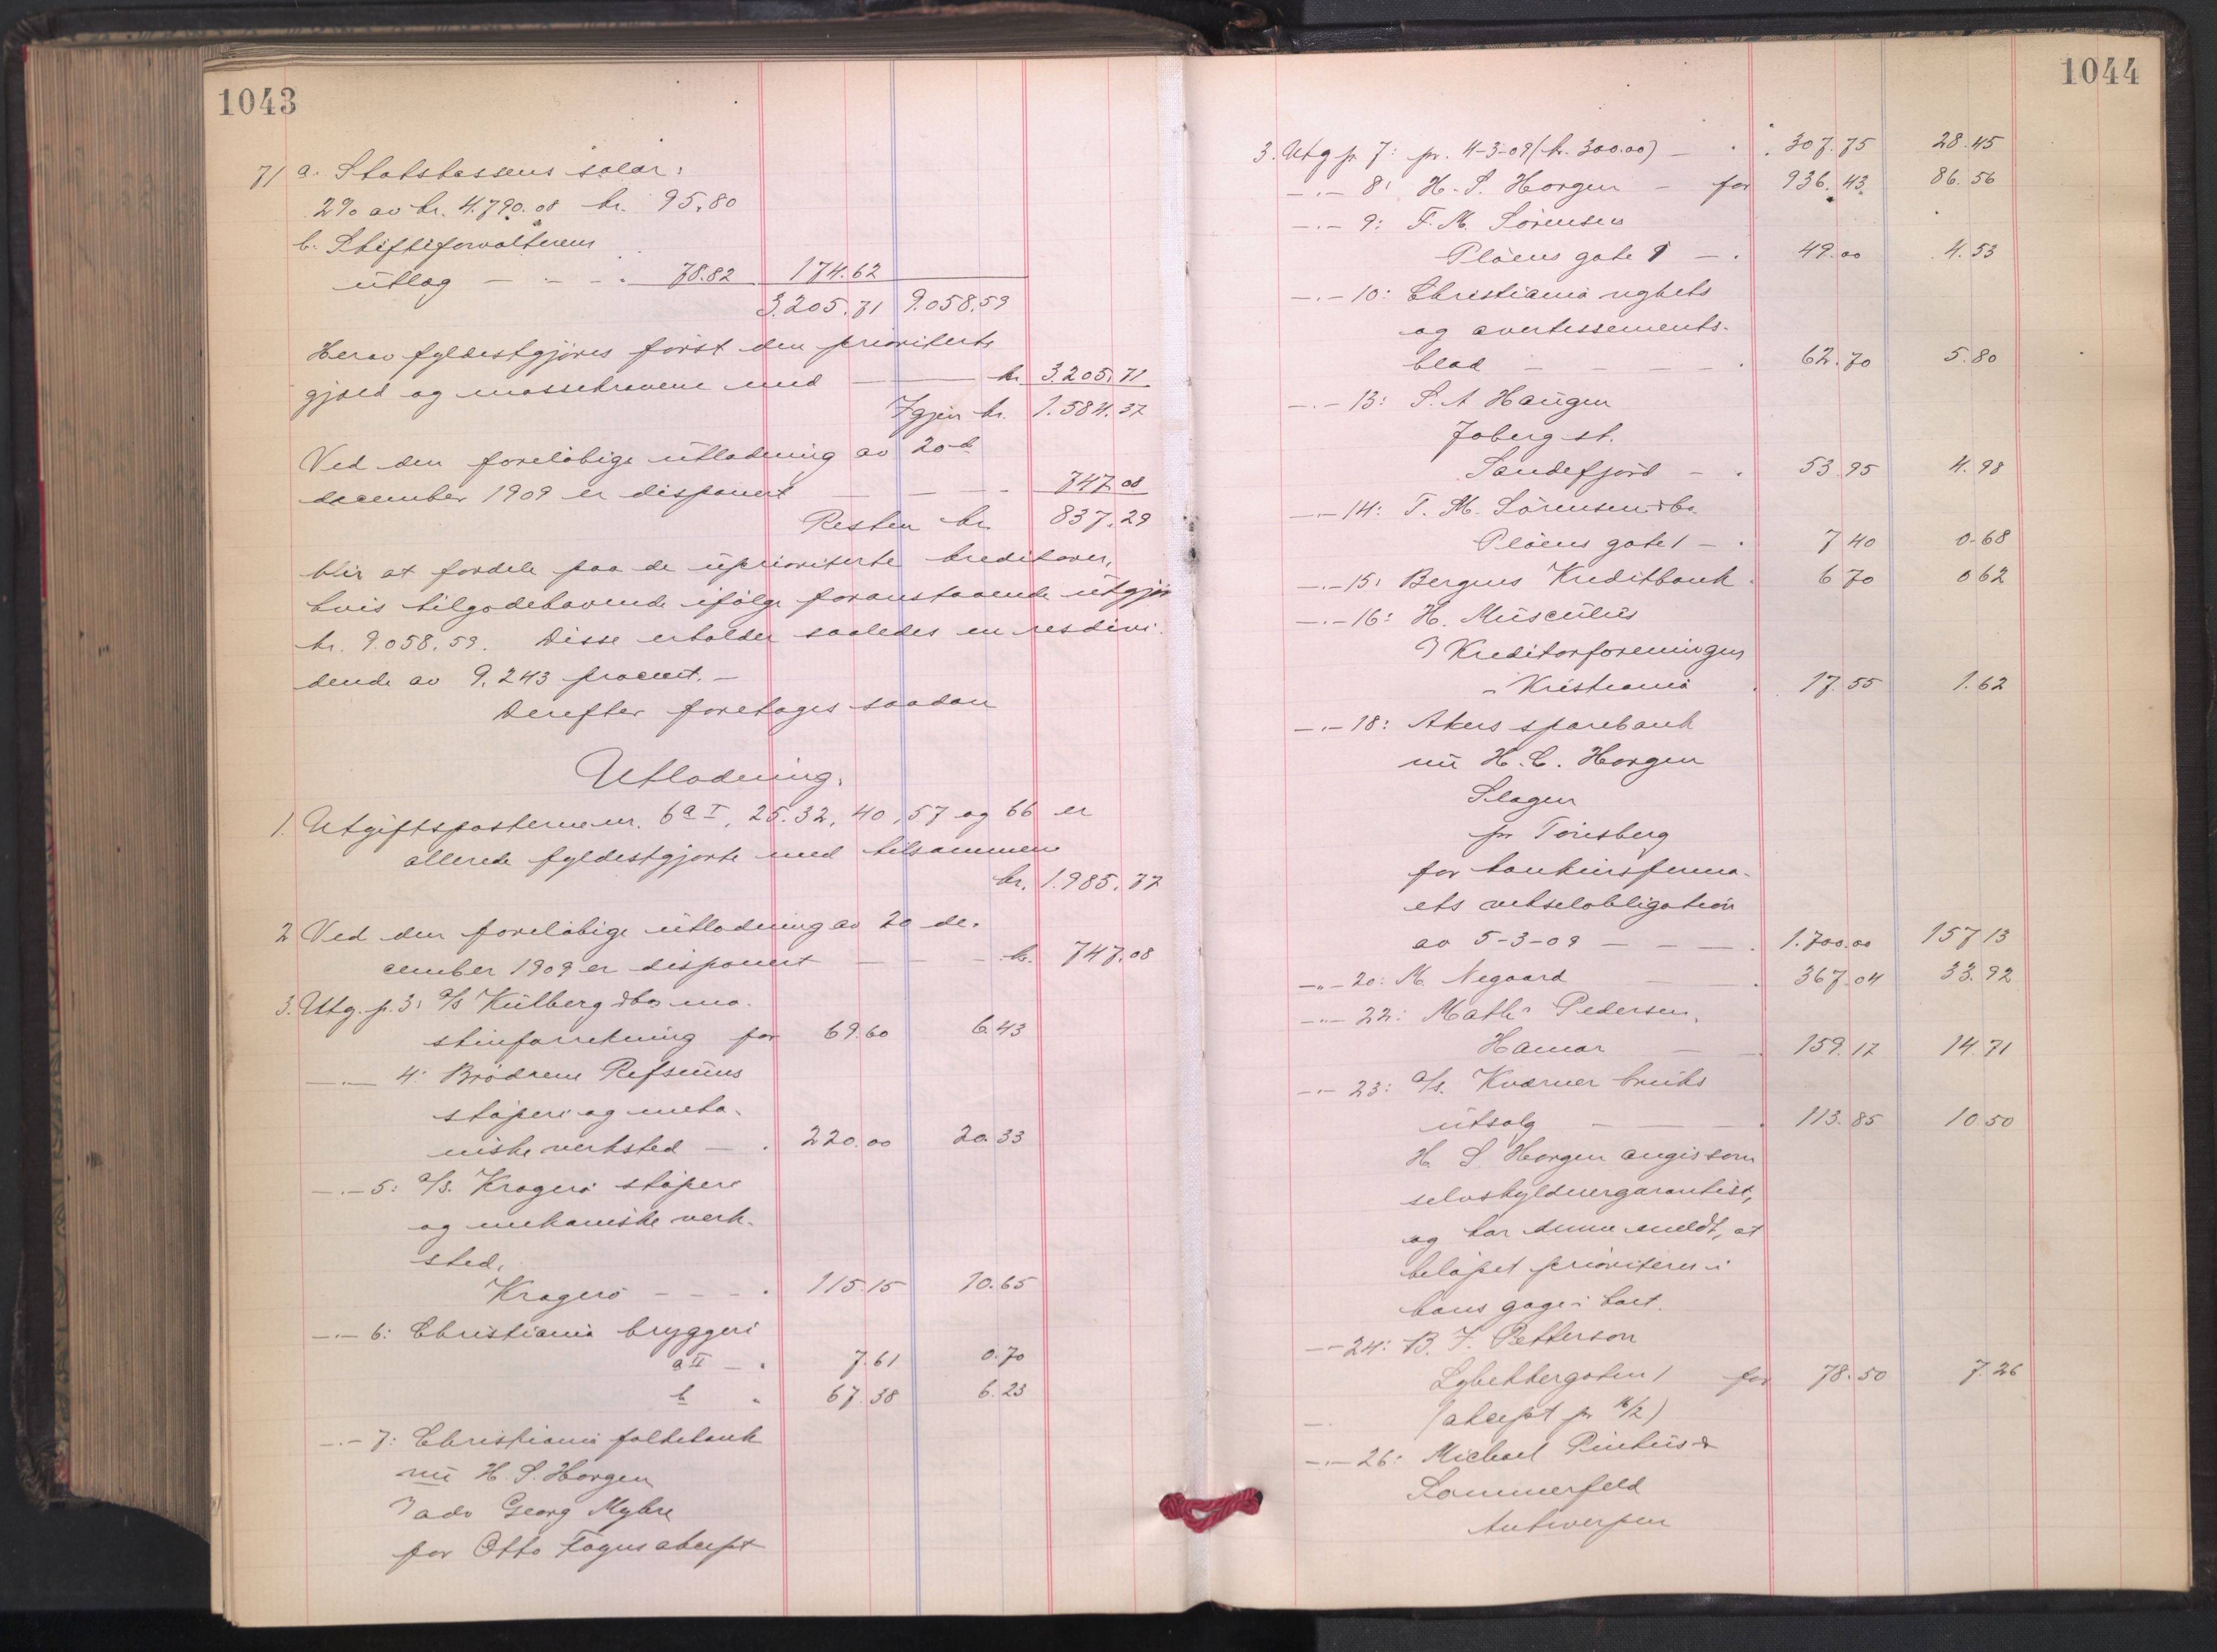 1043
71 a. Statskassens salær:
2% av kr. 4.790.08 kr. 95.80
b. Skifteforvalterens
utlæg — - - . 78.82 174.62
3.205.71 9.058.59
Herav fyldestgjøres først den prioriterte
gjæld og massekravene med — kr. 3.205.71
Igjen kr. 1.584.37
Ved den foreløbige utlodning av 20de
december 1909 er disponert — — - 747.08
Resten kr. 837.29
blir at fordele paa de uprioriterte kreditorer,
hvis tilgodehavende ifølge foranstaaende utgjør
kr. 9.058.59. Disse erholder saaledes en restdivi-
dende av 9.243 procent. —
Derefter foretages saadan
Utlodning.
1. Utgiftsposterne nr. 6 a I, 25. 32, 40, 57 og 66 er
allerede fyldestgjorte med tilsammen
kr. 1.985.77
2 Ved den foreløbige utlodning av 20 de-
cember 1909 er disponert — — - kr. 747.08
3. Utg. p. 3: A/S Kulberg & co ma-
skinforretning for 69.60 6.43
—.— 4: Brødrene Refsums
støperi og meka-
niske verksted — . 220.00 20.33
—.— 5: A/S. Kragerø støperi
og mekaniske verk-
sted,
Kragerø - - - . 115.15 10.65
—.— 6: Christiania bryggeri
a II — . 7.61 0.70
b " 67.38 6.23
—.— 7: Christiania folkebank
nu H. S. Horgen
ɔ adv Georg Myhre
for Otto Fagers aksept
1044
3. Utg p. 7: pr. 4-3-09 (kr. 300.00) — . . 307.75 28.45
—.— 8: H. S. Horgen — for 936.43 86.56
—.— 9: F. M. Sørensen
Pløens gate 1 — . 49.00 4.53
—.— 10: Christiania nyhets
og avertissements-
blad — — — — . 62.70 5.80
—.— 13: S. A Haugen
Joberg st.
Sandefjord — . 53.95 4.98
—.— 14: F. M. Sörensen & co.
Pløens gate 1 — . 7 40 0.68
—.— 15: Bergens Kreditbank . 6 70 0 62
—.— 16: H. Musculus
ɔ Kreditorforeningen
i Kristiania . 17.55 1.62
—.— 18: Akers sparebank
nu H. C. Horgen
Slagen
pr Tønsberg
for konkursfirma-
ets vekselobligation
av 5-3-09 — — — . 1.700.00 157 13
—.— 20: M. Negaard — — . 367.04 33.92
—.— 22: Maths Pedersen,
Hamar — — . 159.17 14.71
—.— 23: A/S. Kværner bruks
utsalg — — . 113.85 10.50
H. S. Horgen angis som
selvskyldnergarantist,
og har denne meldt, at
beløpet prioriteres i
hans gage i kort.
—.— 24: B. F. Petterson
Lybekkergaten 1 for 78.50 7.26
(aksept pr 16/2)
—.— 26: Michael Pintus &
Sommerfeld
Antwerpen